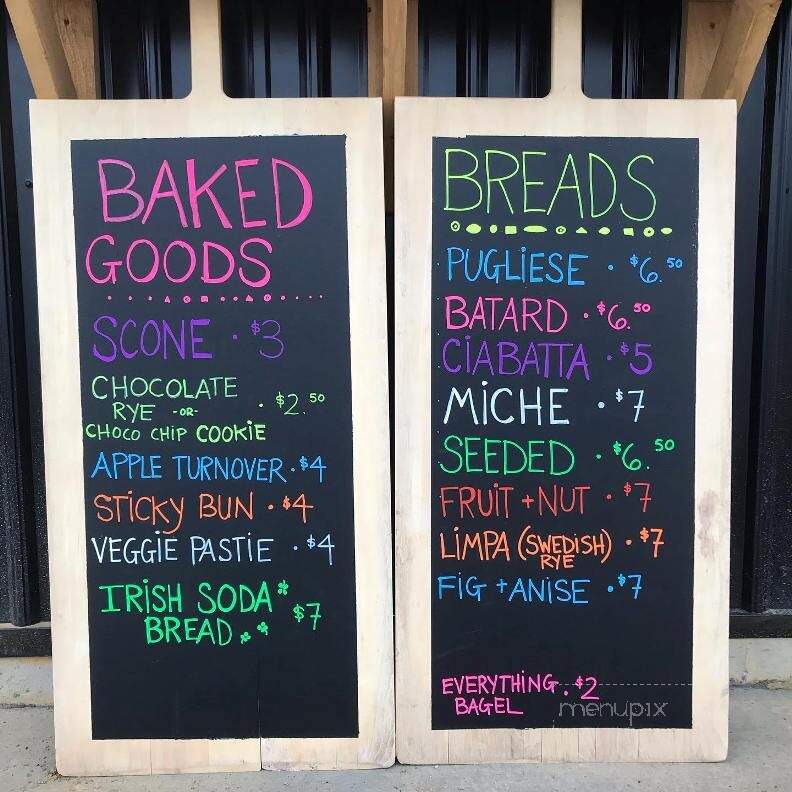 BAKED
GOODS
SCONE · $3
CHOCOLATE
RYE -OR- · $2.50
CHOCO CHIP COOKIE
APPLE TURNOVER · $4
STICKY BUN · $4
VEGGIE PASTIE · $4
IRISH SODA
BREAD $7
BREADS
PUGLIESE · $6.50
BATARD · $6.50
CIABATTA · $5
MICHE · $7
SEEDED · $6.50
FRUIT + NUT · $7
LIMPA (SWEDISH) · $7
RYE
FIG + ANISE · $7
EVERYTHING · $2
BAGEL
menupix